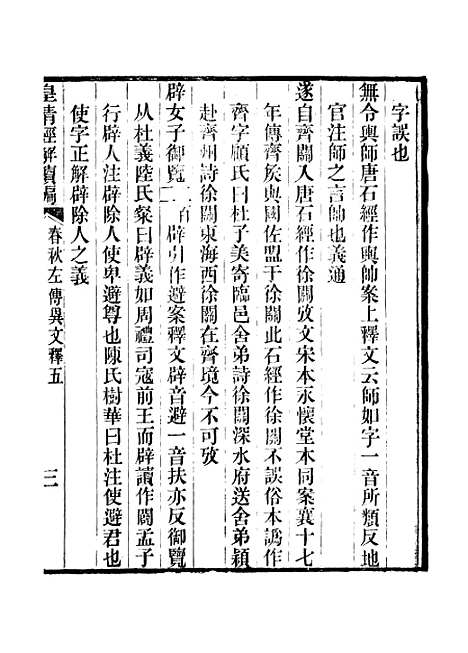 字誤也
無令輿師唐石經作輿帥案上釋文云師如字一音所類反地
官注師之言帥也義通
遂自齊關入唐石經作徐關攷文宋本永懷堂本同案襄十七
年傳齊族與國佐盟于徐關此石經作徐關不誤俗本譌作
齊字顧氏曰杜子美寄臨邑舍弟詩徐關深水府送舍弟穎
赴齊州詩徐關東海西徐關在齊境今不可攷
辟女子御覽二百辟引作避案釋文辟音避一音扶亦反御覽
从杜義陸氏粲曰辟義如周禮司寇前王而辟讀作闢孟子
行辟人注辟除人使卑避尊也陳氏樹華曰杜注使避君也
使字正解辟除人之義
皇清經解續編 春秋左傳異文釋五 三